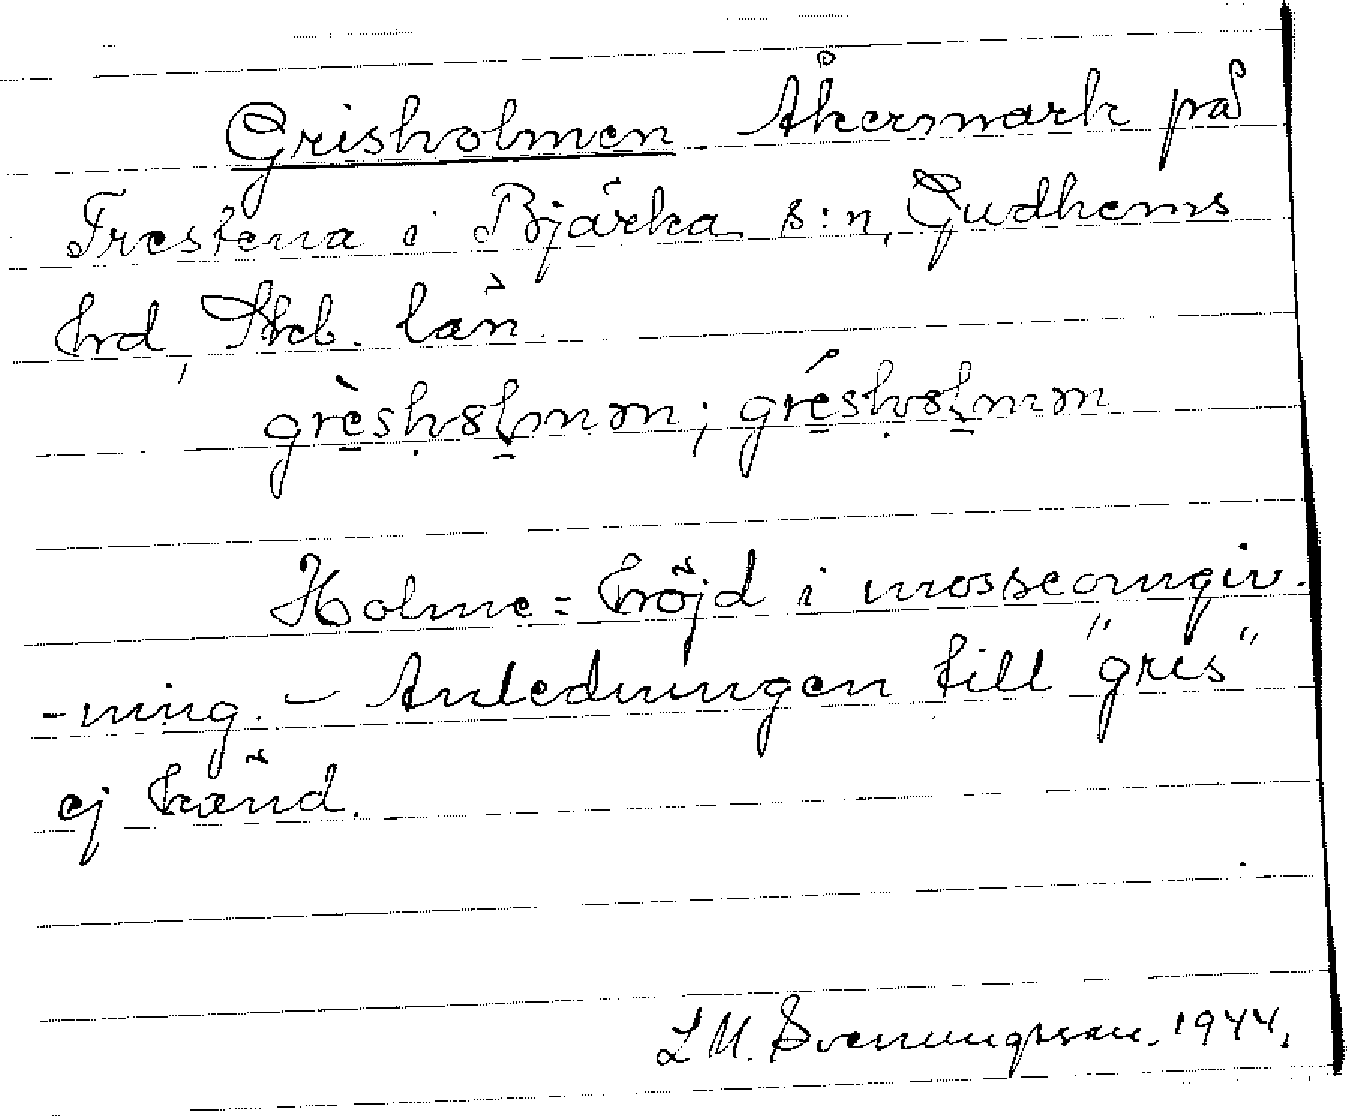 Grisholmen Åkermark på
Frestena i Bjärka s:n, Gudhems
hrd, Skb. län.
Holme = höjd i mosseomgiv-
-ning. – Anledningen till "gris"
ej känd.
L M. Svenungsson. 1944.